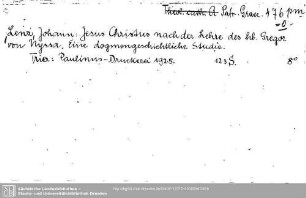 Theol. cath. A. Patr. Graec. 476 pm
Lenz, Johann. Jesus Christus nach der Lehre des hl. Gregor
von Nyssa. Eine dogmengeschichtliche Studie.
Trier: Paulinus-Druckerei 1925. 123 S. 8°
Sächsische Landesbibliothek -
Staats- und Universitätsbibliothek Dresden